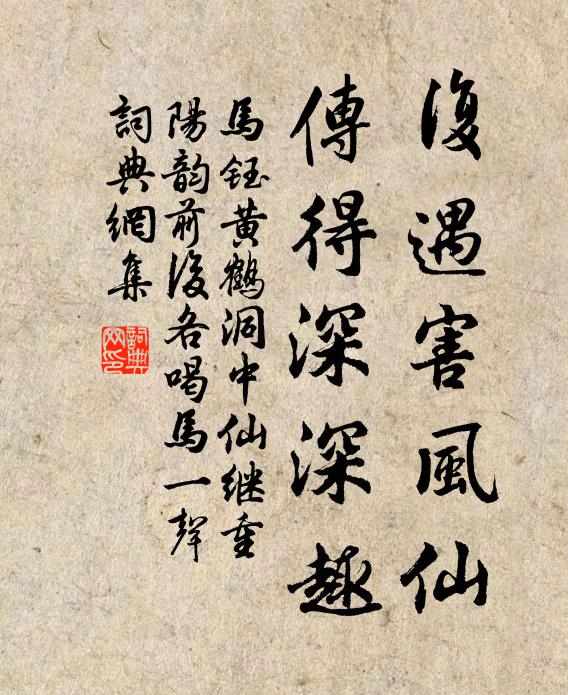 復遇害風仙
傳得深深趣
馬鈺黄鶴洞中仙继重
陽韵前後各喝馬一聲
詞典網集
詞典网印